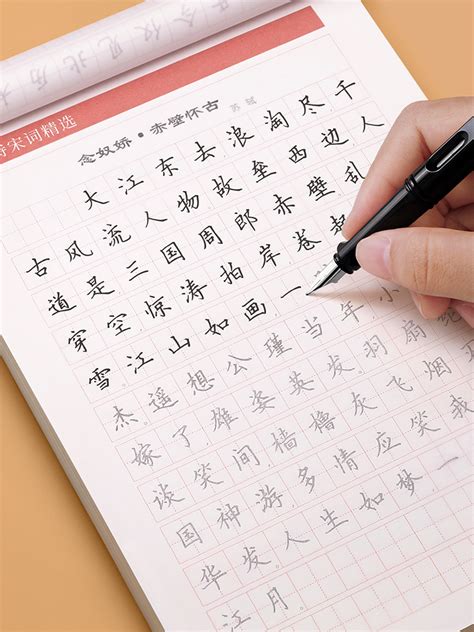 诗宋词精选
念奴娇·赤壁怀古 苏轼
大江东去,浪淘尽,千
古风流人物。故垒西边,人
道是,三国周郎赤壁。乱
穿空,惊涛拍岸,卷起
雪。江山如画,一
杰。遥想公瑾当年,小
嫁了,雄姿英发。羽扇纶
谈笑间,樯橹灰飞烟
国神游,多情应笑我
华发。人生如梦,一
江月。